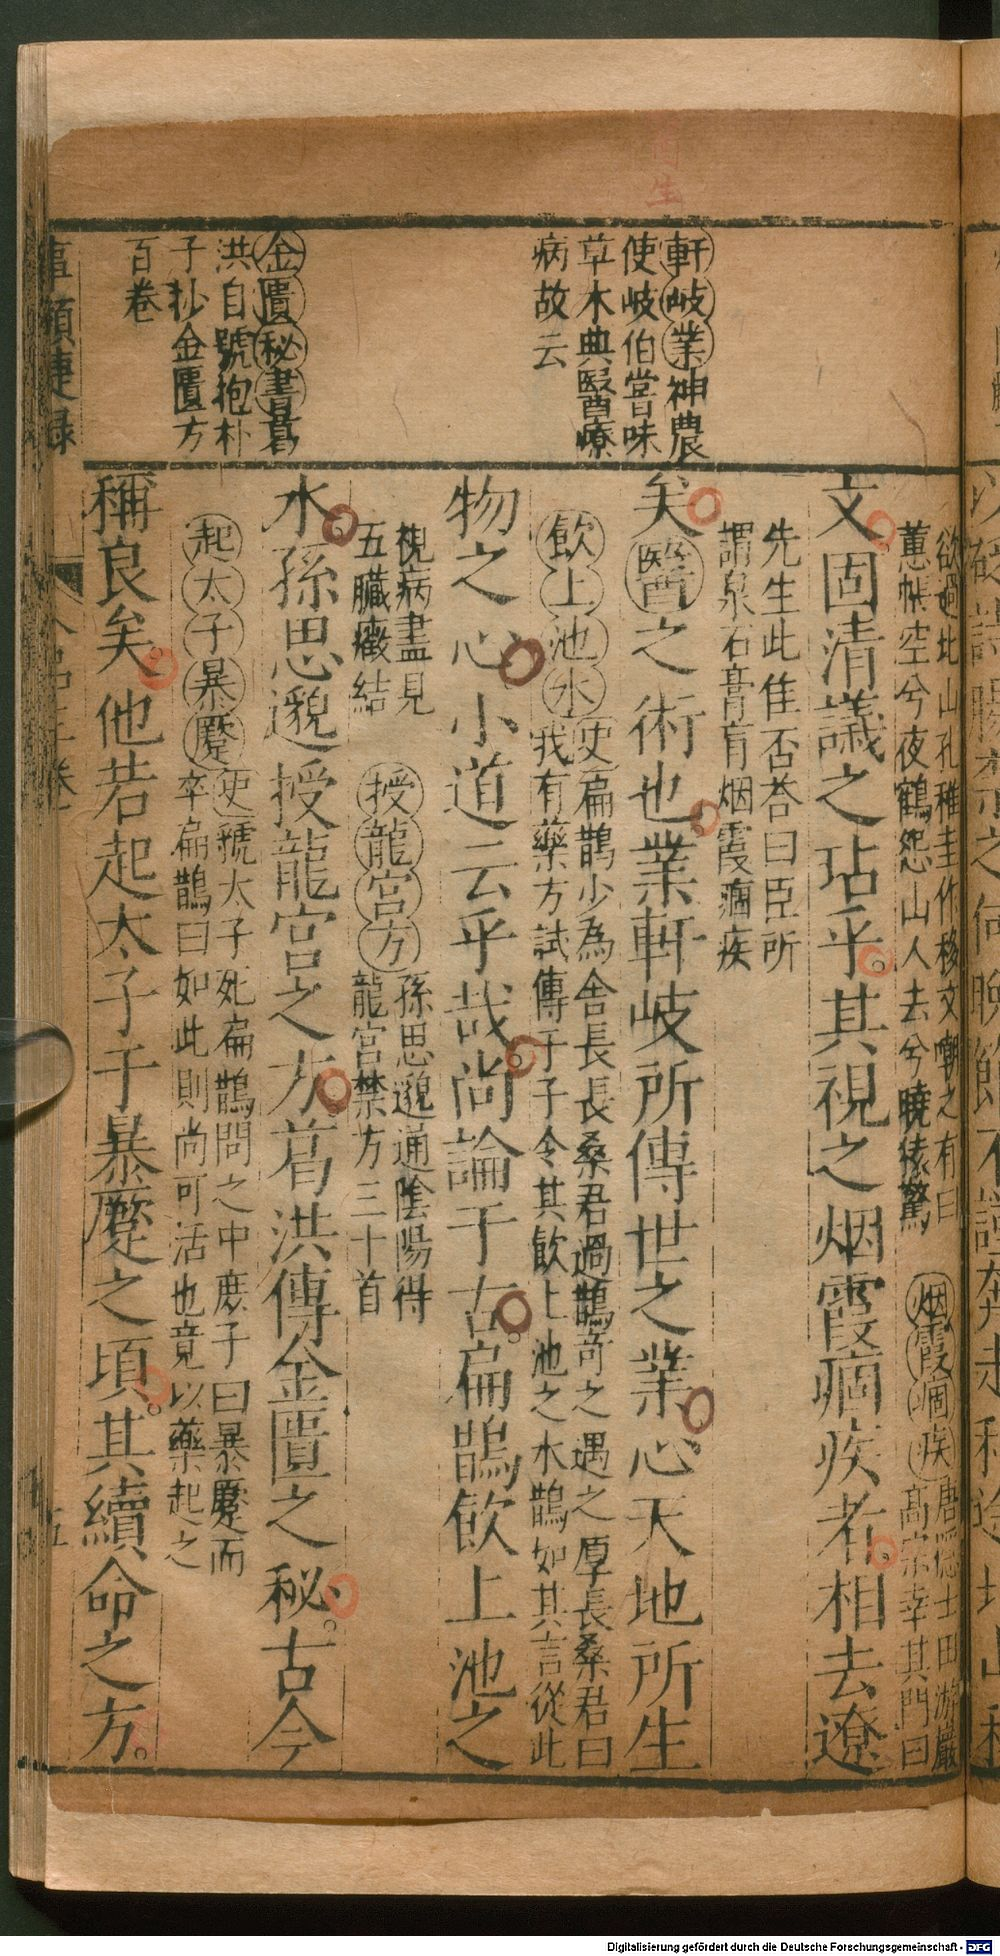 醫生
軒岐業神農
使岐伯嘗味
草木典醫療
病故云
金匱秘書葛
洪自號抱朴
子抄金匱方
百卷
欲過北山孔稚圭作移文嘲之有曰
蕙帳空兮夜鶴怨山人去兮曉猿驚
烟霞痼疾唐隱士田游巖
高宗幸其門曰
文固清議之玷乎其視之烟霞痼疾者相去遼
先生此佳否答曰臣所
謂泉石膏肓烟霞痼疾
矣醫之術也業軒岐所傳世之業心天地所生
飲上池水史扁鵲少為舍長長桑君過鵲奇之遇之厚長桑君曰
我有藥方試傳于子令其飲上池之水鵲如其言從此
物之心小道云乎哉尚論于古扁鵲飲上池之
視病盡見
五臟癥結
授龍宮方孫思邈通陰陽得
龍宮禁方三十首
水孫思邈授龍宮之方葛洪傳金匱之秘古今
起太子暴蹷史虢太子死扁鵲問之中庶子曰暴蹷而
卒扁鵲曰如此則尚可活也竟以藥起之
稱良矣他若起太子于暴蹷之頃其續命之方
事類捷錄
五
Digitalisierung gefördert durch die Deutsche Forschungsgemeinschaft - DFG